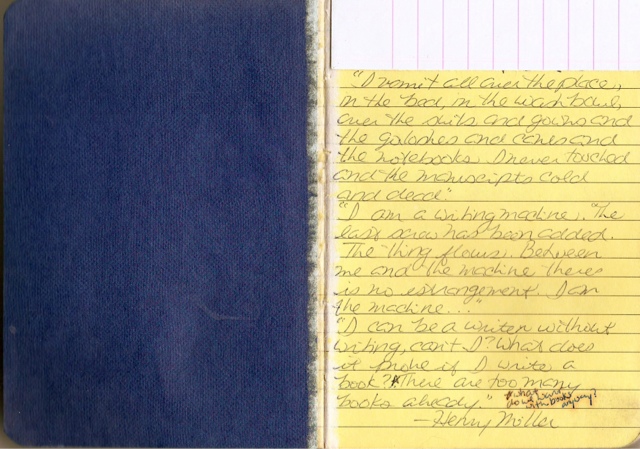 "I vomit all over the place,
in the bed, in the washbowl,
over the suits and gowns and
the galoshes and canes and
the notebooks I never touched
and the manuscripts cold
and dead."
"I am a writing machine. "The
last screw has been added.
The thing flows. Between
me and the machine there is
is no estrangement. I am
the machine..."
"I can be a writer without
writing, can't I? What does
it prove if I write a
book? *There are too many
books already."
*what
do we want
with books
anyway?
—Henry Miller